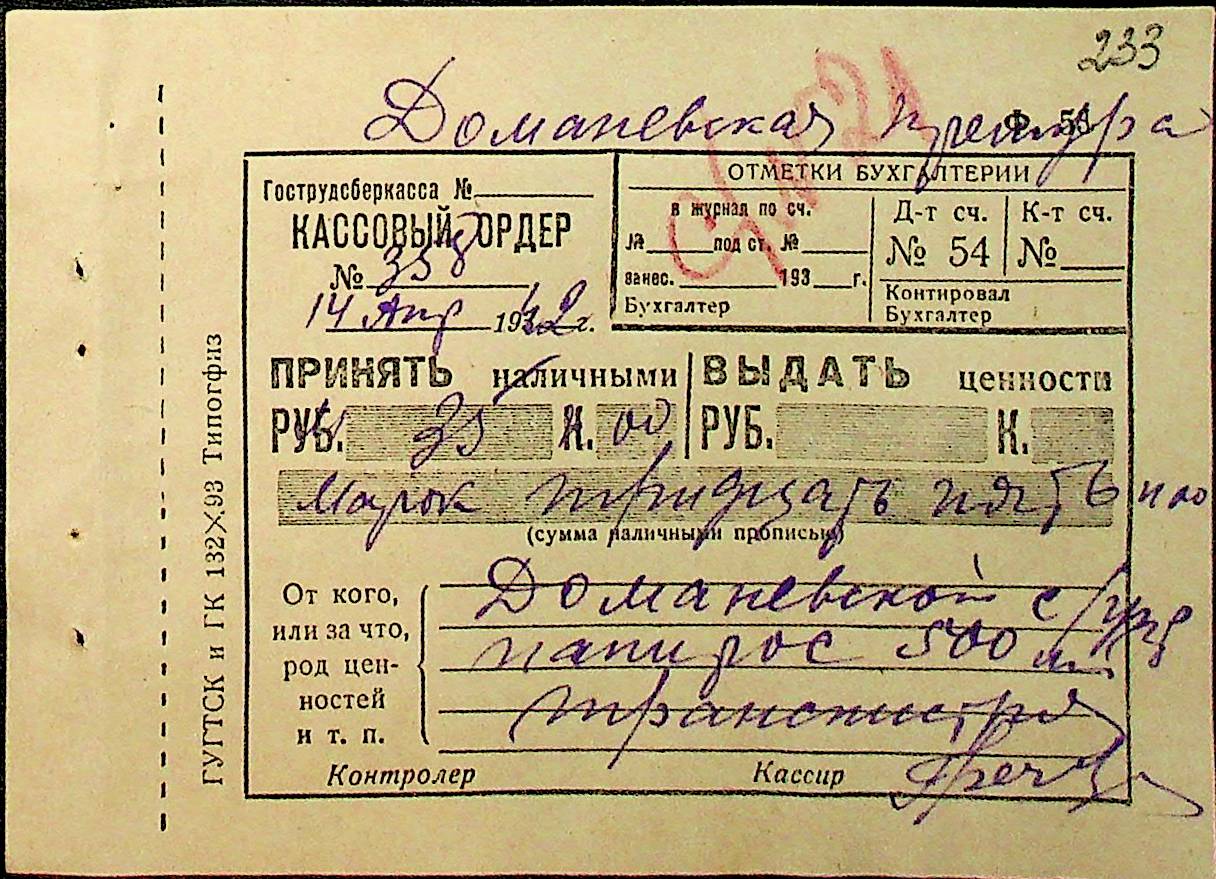 233
Доманевская претура
Ф. 54
Гострудсберкасса №
КАССОВЫЙ ОРДЕР
№ 358
14 Апр 1942 г.
ОТМЕТКИ БУХГАЛТЕРИИ
в журнал по сч.
№ под ст. №
занес. 193 г.
Бухгалтер
Д-т сч.
№ 54
К-т сч.
№
Контировал
Бухгалтер
ПРИНЯТЬ наличными
РУБ. 35 К. 00
ВЫДАТЬ ценности
РУБ. К.
Марок тридцать пять и 00
(сумма наличными прописью)
От кого,
или за что,
род цен-
ностей
и т. п.
Доманевской с/упр
папирос 500 шт
Контролер
Кассир
ГУГТСК и ГК 132X93 Типогфиз